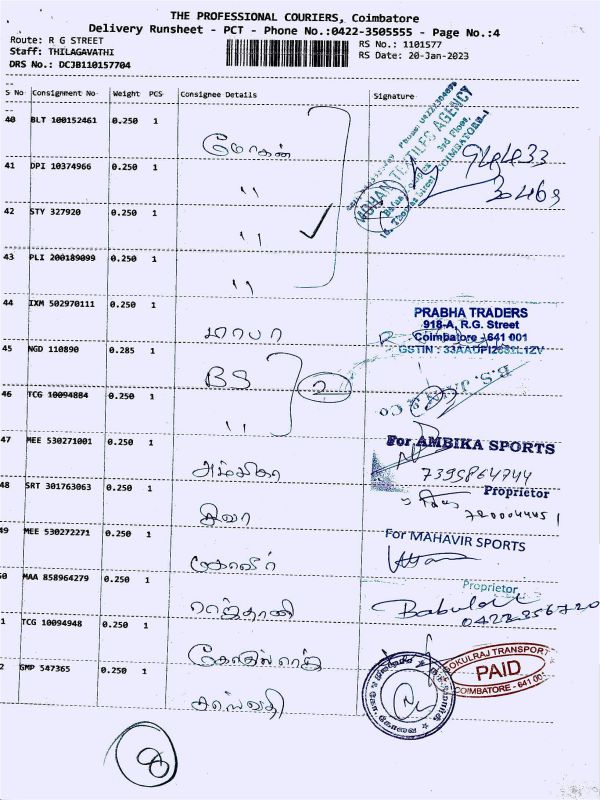 THE PROFESSIONAL COURIERS, Coimbatore
Delivery Runsheet - PCT - Phone No.:0422-3505555 - Page No.:4
Route: R G STREET
RS No.: 1101577
Staff: THILAGAVATHI
RS Date: 20-Jan-2023
DRS No.: DCJB110157704
S No Consignment No Weight PCS Consignee Details Signature
40 BLT 100152461 0.250 1
மோகன்
MOHAN TEXTILES AGENCY
3rd Floor,
COIMBATORE-1
41 DPI 10374966 0.250 1 "
42 STY 327920 0.250 1 "
43 PLI 200189099 0.250 1 "
44 IXM 502970111 0.250 1
PRABHA TRADERS
918-A, R.G. Street
Coimbatore - 641 001
45 NGD 110890 0.285 1 BS 2
B.S. JAIN & CO
46 TCG 10094884 0.250 1 "
47 MEE 530271001 0.250 1
For AMBIKA SPORTS
அம்பிகா
7395864944
Proprietor
48 SRT 301763063 0.250 1
7200044451
49 MEE 530272271 0.250 1
For MAHAVIR SPORTS
மகாவீர்
Proprietor
50 MAA 858964279 0.250 1
ராஜ்தானி
Babulal
0422356720
1 TCG 10094948 0.250 1
GOKULRAJ TRANSPORT
PAID
COIMBATORE - 641 001
2 GMP 547365 0.250 1
8